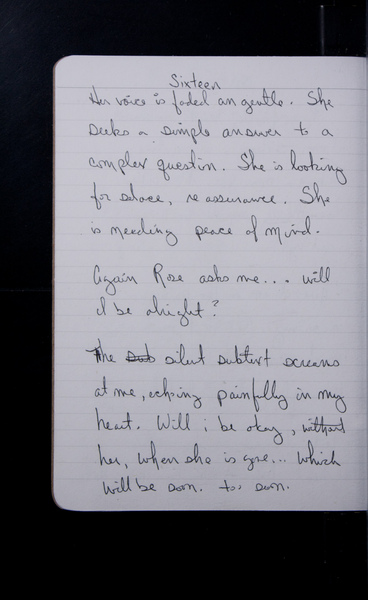 Sixteen
Her voice is faded an gentle. She
seeks a simple answer to a
complex question. She is looking
for solace, re assurance. She
is needing peace of mind.
Again Rose asks me... will
I be alright?
The silent subtext screams
at me, echoing painfully in my
heart. Will i be okay, without
her, when she is gone... which
will be soon. too soon.